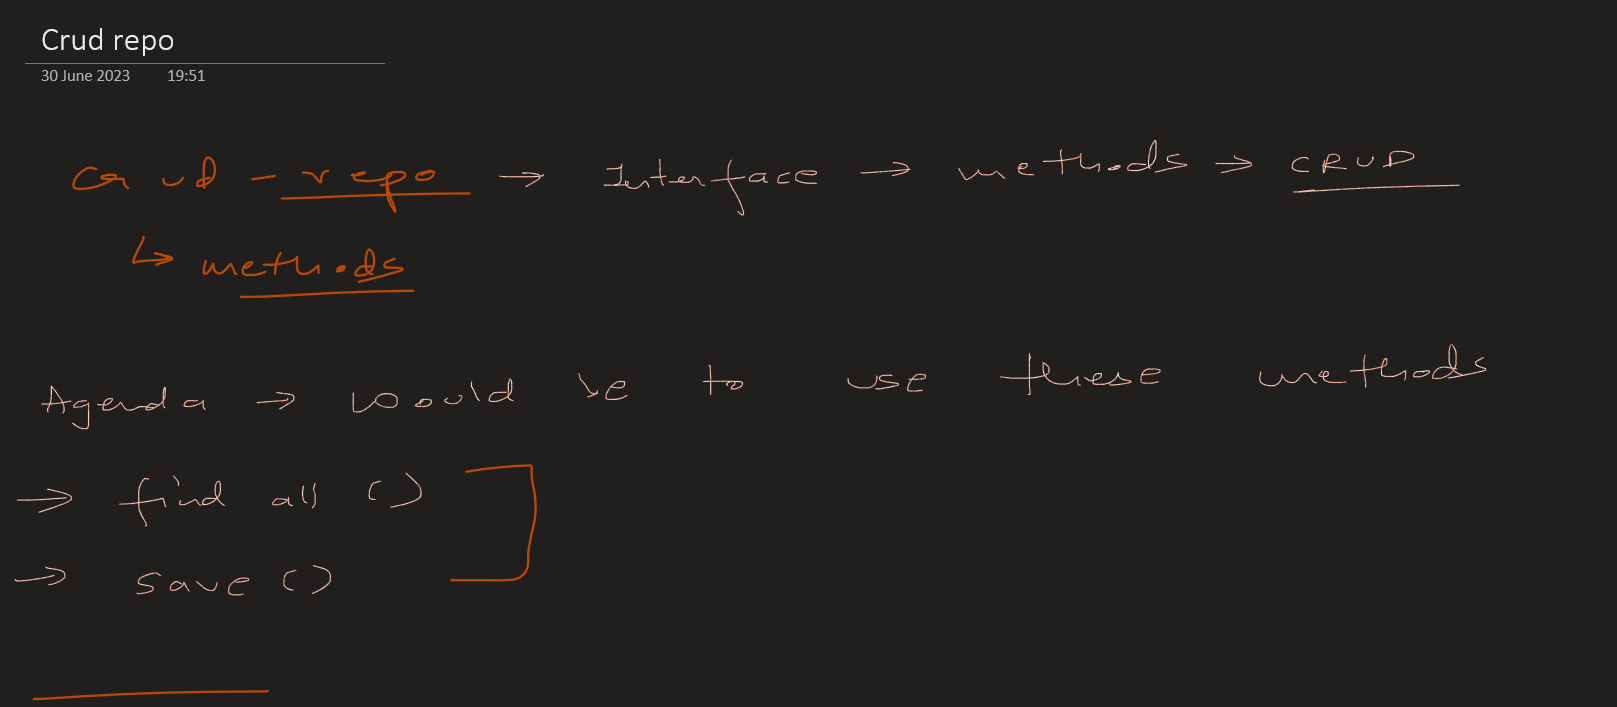 Crud repo
30 June 2023 19:51
Crud - repo → Interface → methods → CRUD
↳ methods
Agenda → would be to use these methods
→ find all ()
→ save ()